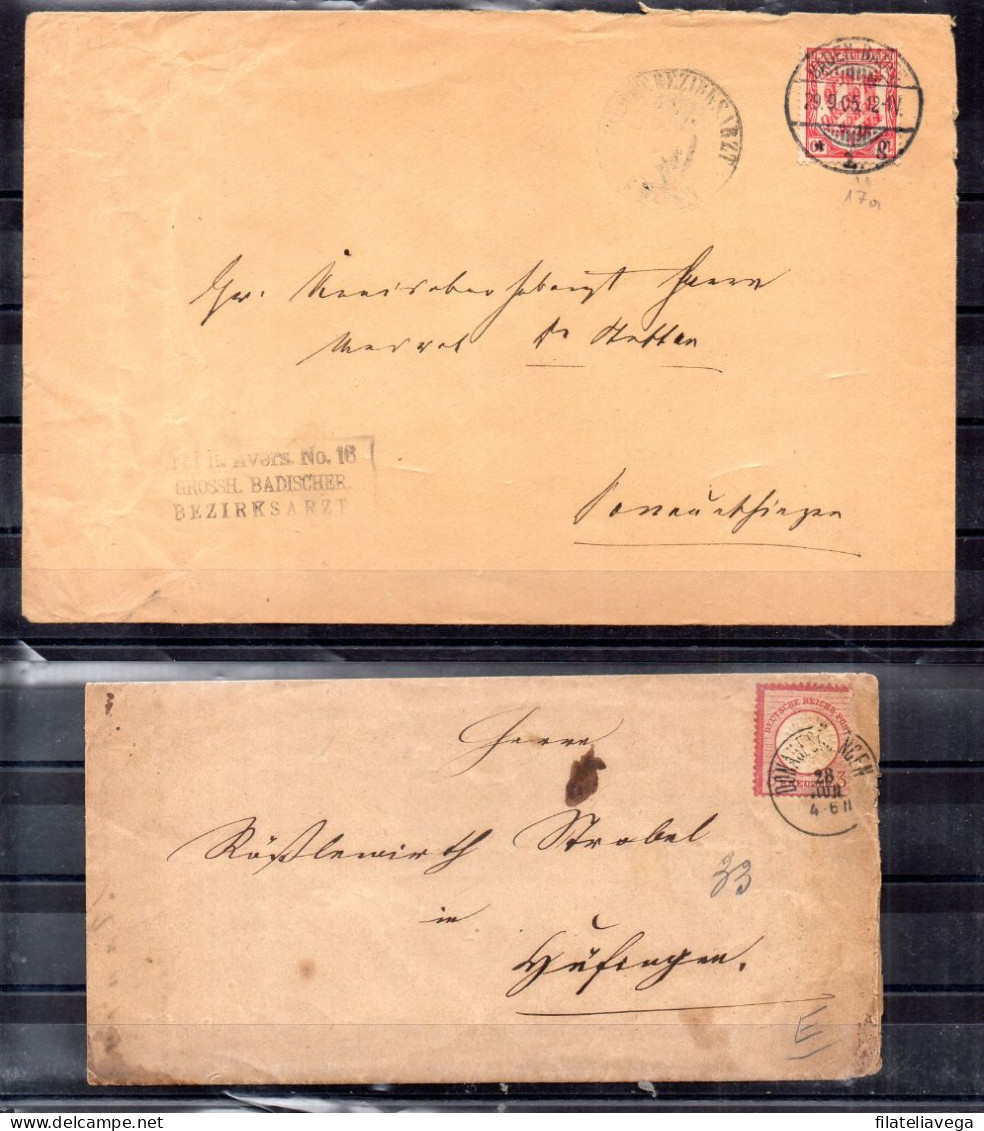 BEZIRKSARZT
BADEN-B
29.9.05.12-1
* 2. 8
17a
Gr.
Herrn
Dr Stetten
Avers. No. 16
GROSSH. BADISCHER.
BEZIRKSARZT
Donaueschingen
DEUTSCHE REICHS-POST
3
DONAUESCHINGEN
28
4-6 N
Herrn
Rößlewirth Strobel
33
in
Hüfingen.
E
© filateliavega